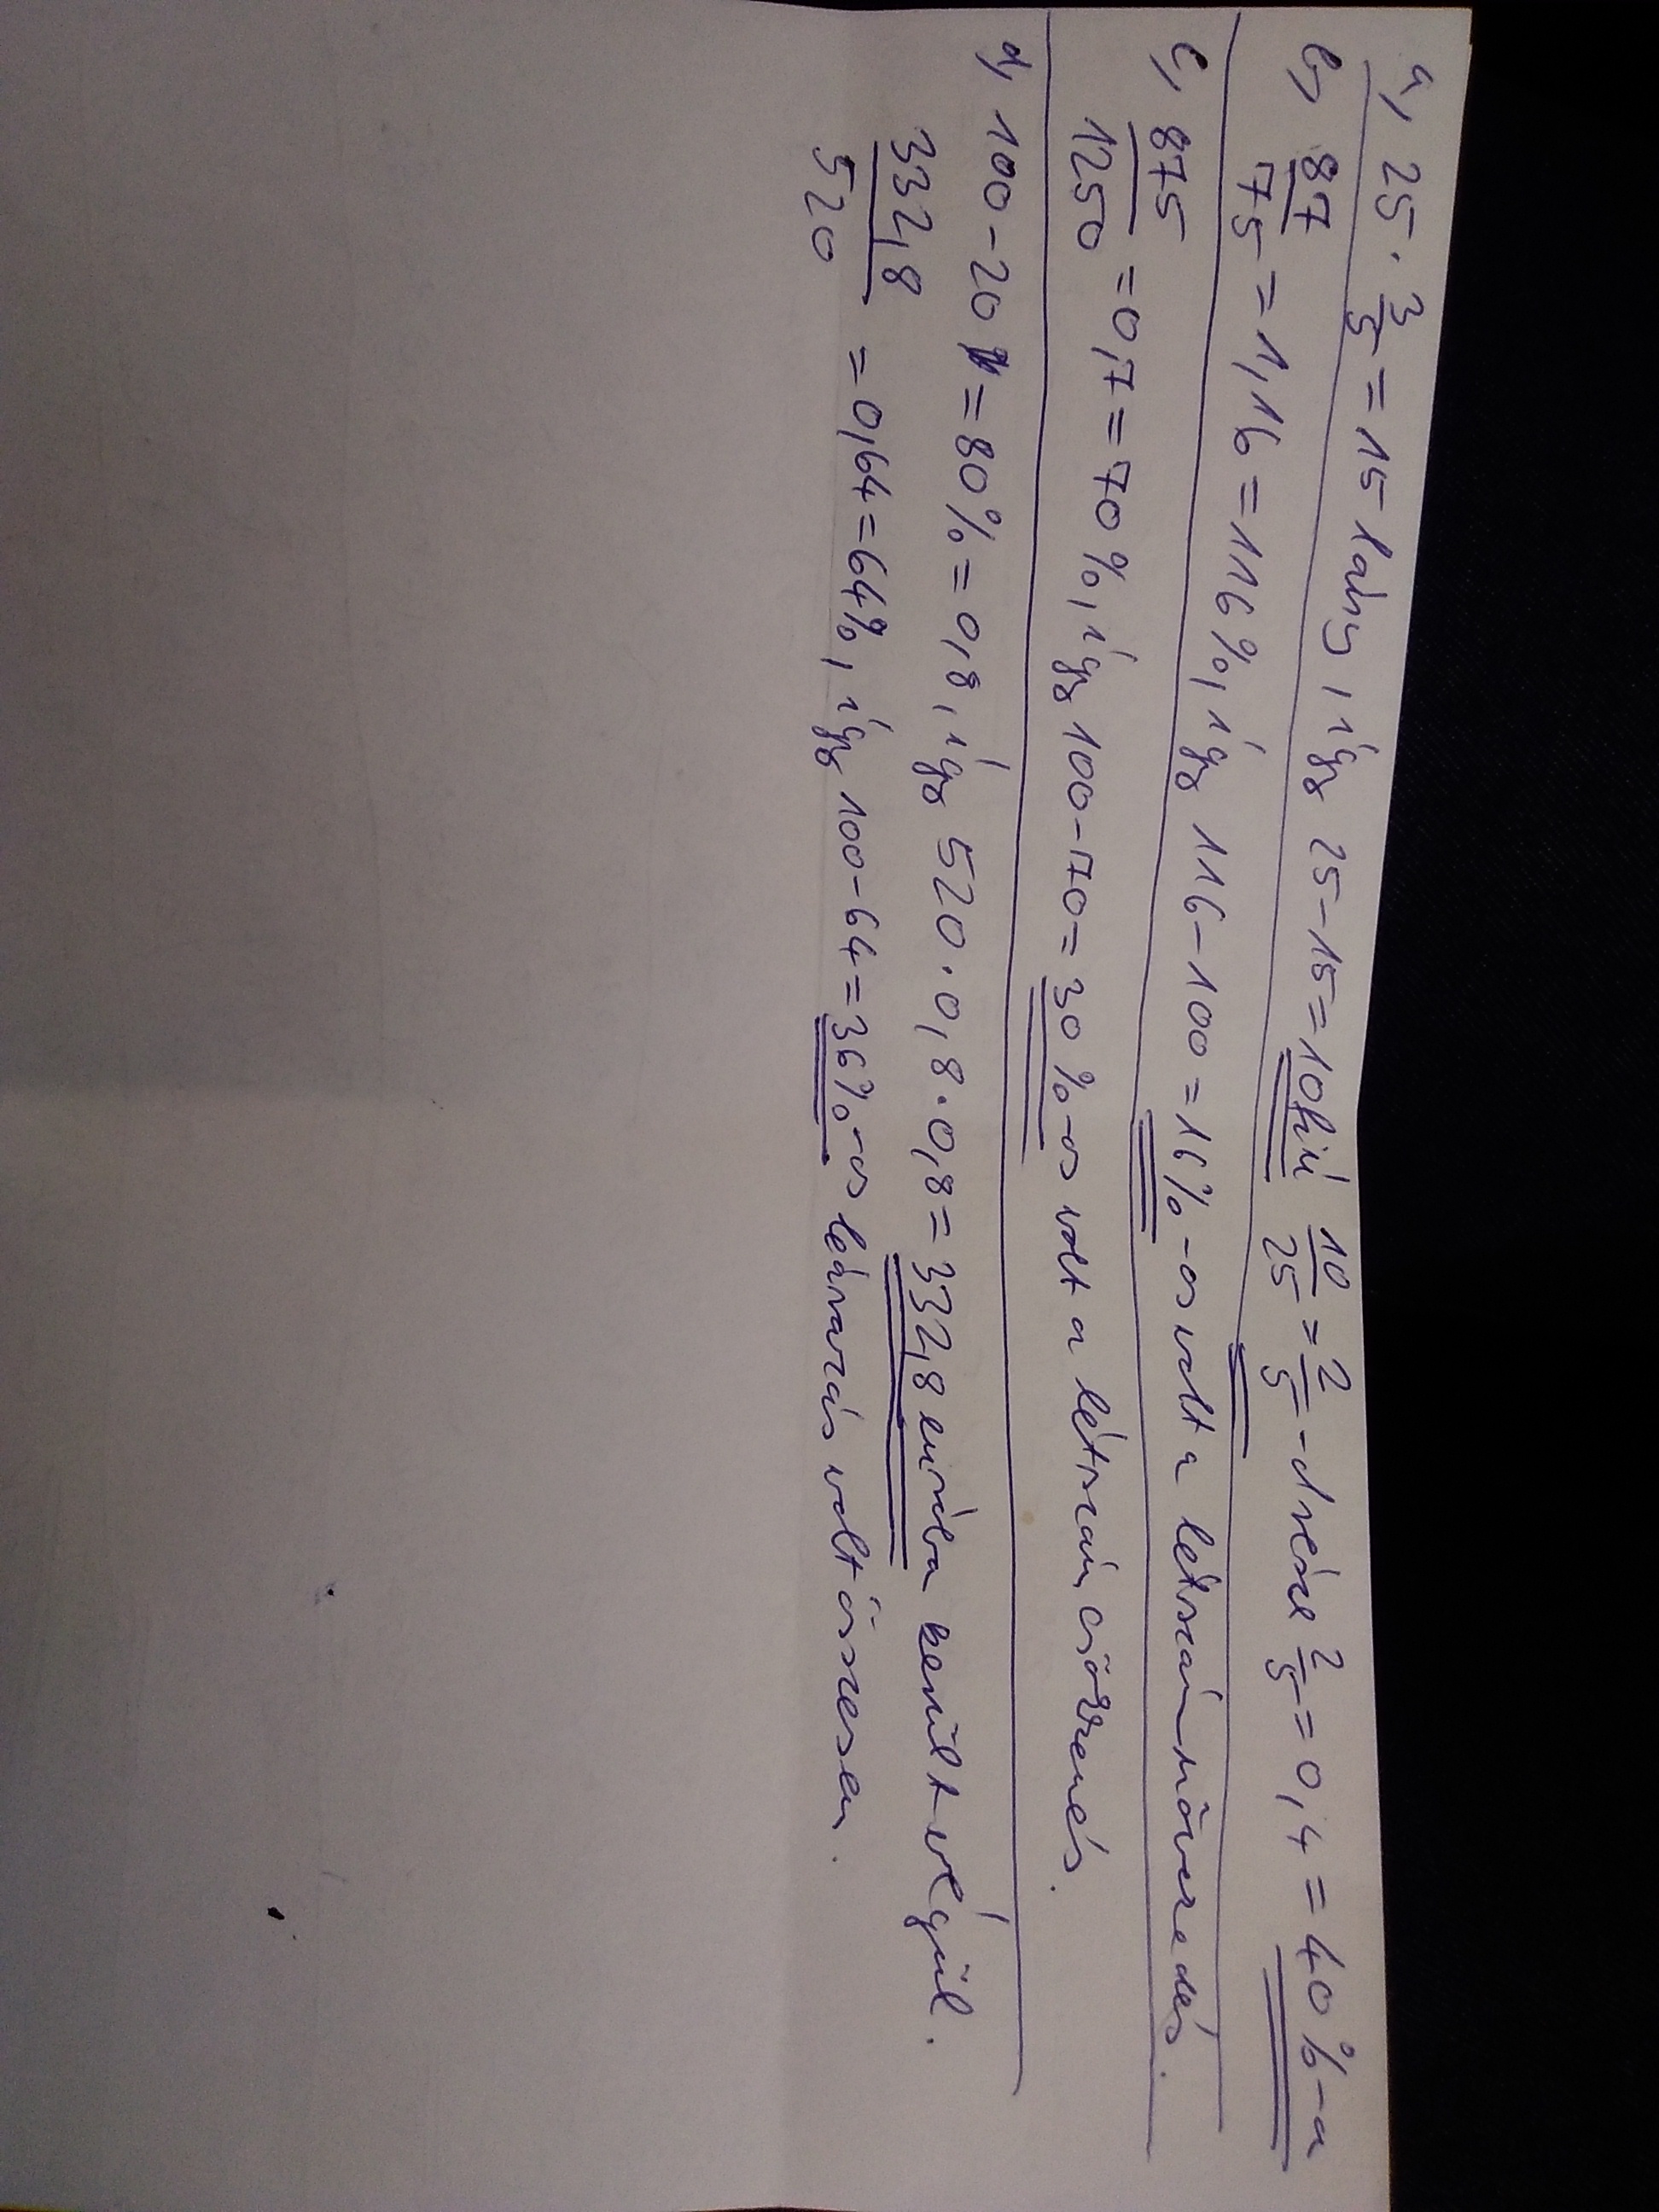 a, 25 · 3/5 = 15 lány, így 25-15=10fiú 10/25 = 2/5 -d része 2/5 = 0,4 = 40%-a
b, 87/75 = 1,16 = 116%, így 116-100 = 16%-os volt a létszámnövekedés.
c, 875/1250 = 0,7 = 70%, így 100-70= 30%-os volt a létszámcsökkenés.
d, 100-20 = 80% = 0,8, így 520 · 0,8 · 0,8 = 332,8 euróba került végül.
332,8/520 = 0,64 = 64%, így 100-64 = 36%-os leárazás volt összesen.